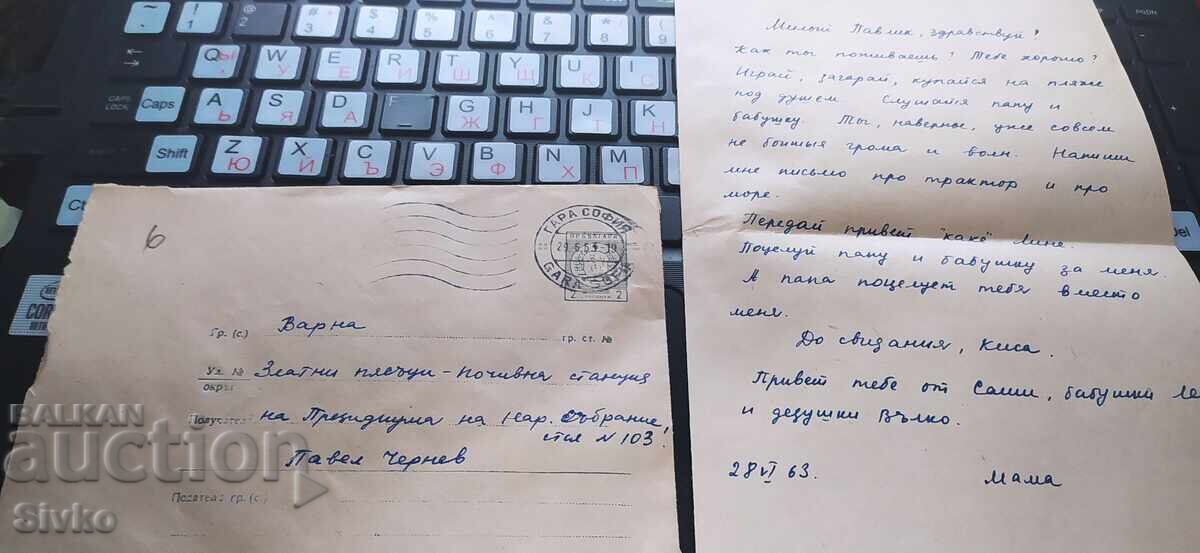 6
ГАРА СОФИЯ
GARA SOFIA
2 2
Гр. (с.) Варна гр. ст. №
Ул. № Златни пясъци - Почивна станция
окръг
Получател на Президиума на Нар. Събрание,
стая N 103.
Павел Чернев
Подател гр. (с.)
Милый Павлик, здравствуй!
Как ты поживаешь? Тебе хорошо?
Играй, загарай, купайся на пляже
под душем. Слушайся папу и
бабушку. Ты, наверное, уже совсем
не боишься грома и волн. Напиши
мне письмо про трактор и про
море.
Передай привет "како" Лине.
Поцелуй папу и бабушку за меня.
А папа поцелует тебя вместо
меня.
До свидания, Киса.
Привет тебе от Саши, бабушки
и дедушки Вълко.
28 VI 63.
Мама
Caps
Shift
Ctrl
CAPS LOCK
PGDN
Del
Q W E R T Y U I O P
A S D F G H J K L
Z X C V B N M
BALKAN
auction
Sivko